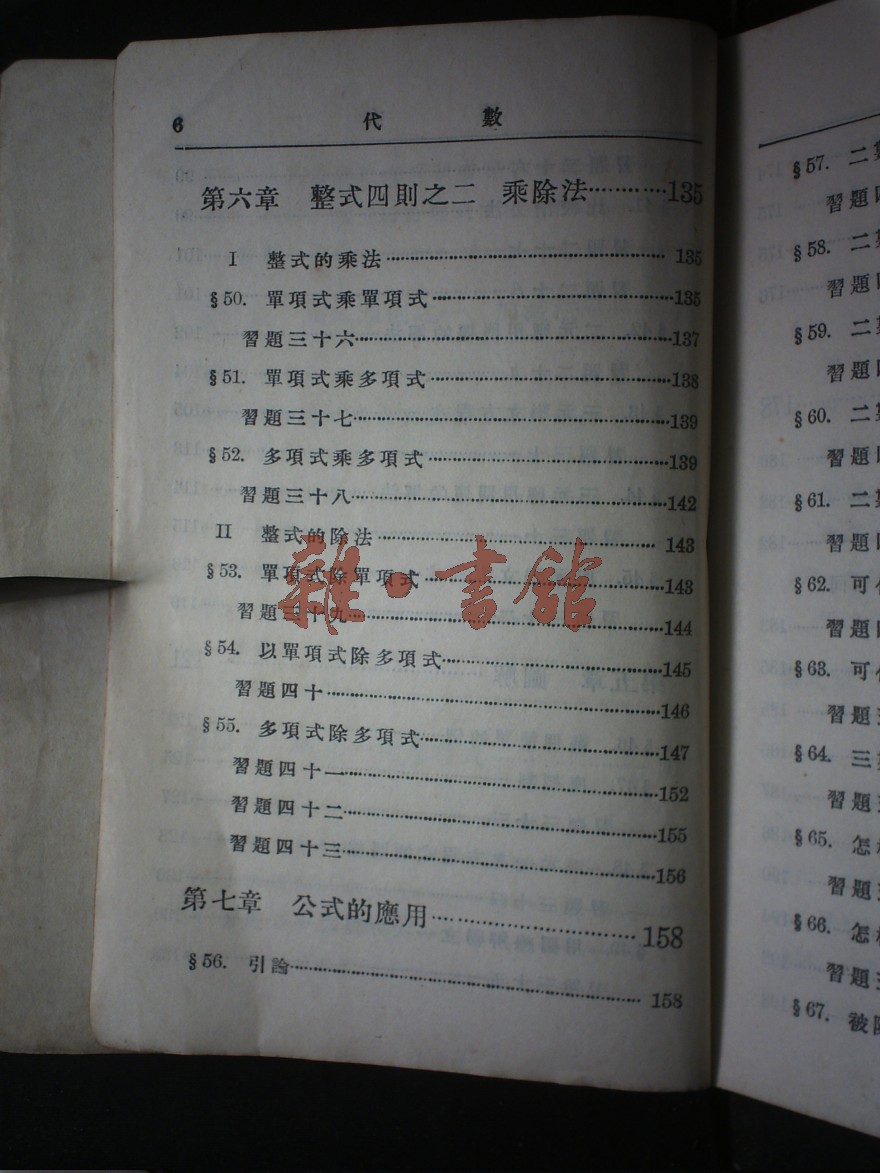 6 代 數
第六章 整式四則之二 乘除法…………135
I 整式的乘法…………135
§50. 單項式乘單項式…………135
習題三十六…………137
§51. 單項式乘多項式…………138
習題三十七…………139
§52. 多項式乘多項式…………139
習題三十八…………142
II 整式的除法…………143
§53. 單項式除單項式…………143
習題三十九…………144
§54. 以單項式除多項式…………145
習題四十…………146
§55. 多項式除多項式…………147
習題四十一…………152
習題四十二…………155
習題四十三…………156
第七章 公式的應用…………158
§56. 引論…………158
雜·書館
§57. 二
習題
§58. 二
習題
§59. 二
習題
§60. 二
習題
§61. 二
習題
§62. 可
習題
§63. 可
習題
§64. 三
習題
§65. 怎
習題
§66. 怎
習題
§67. 被